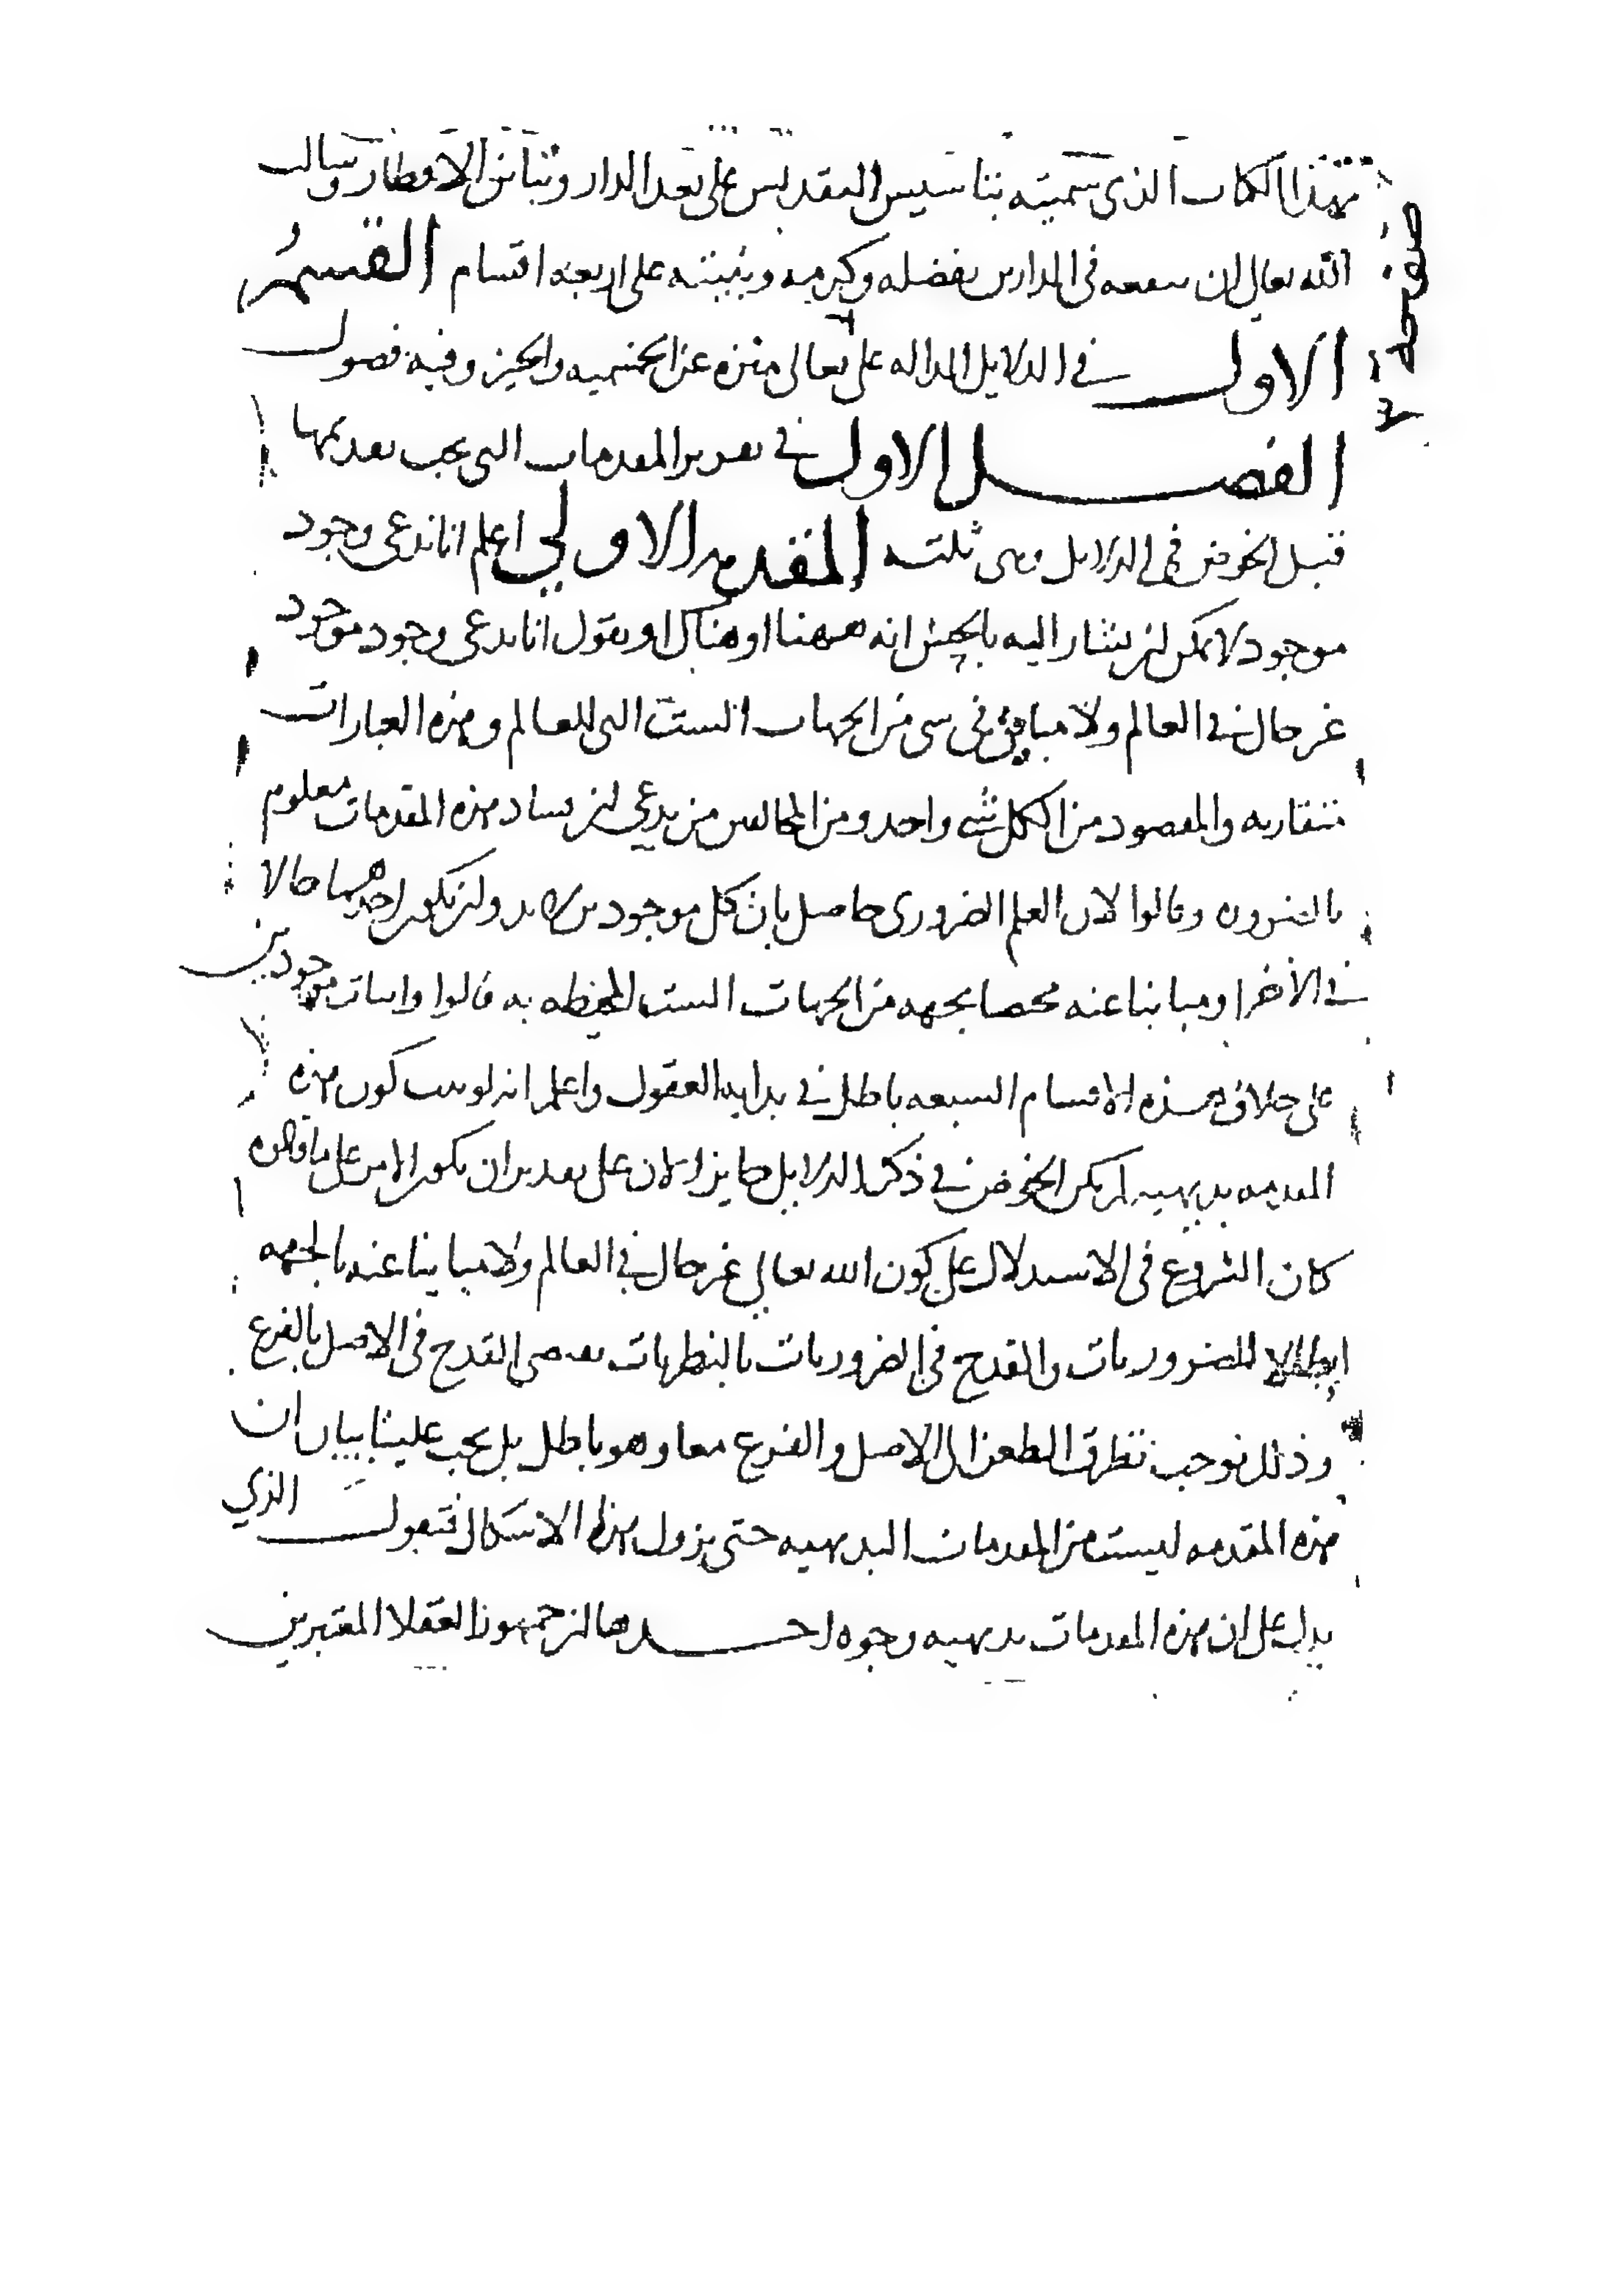 بهذا الكتاب الذي سميته بتاسيس التقديس على بعد الدار وتباين الاقطار وسالت
الله تعالى ان ينفعه في الدارين بفضله وكرمه ورتبته على اربعة اقسام القسمُ
الاول في الدلايل الداله على تعالى منزه عن الجسميه والحيز وفيه فصول
الفصل الاول في تقرير المقدمات التي يجب تقديمها
قبل الخوض في الدلايل وهي ثلثه المقدمه الاولي اعلم انا ندعي وجود
موجود لا يمكن ان يشار اليه بالحس انه ههنا او هناك او نقول انا ندعي وجود موجود
غير حال في العالم ولا مباين في شي من الجهات الست التي للعالم وهذه العبارات
متقاربه والمقصود من الكل شي واحد ومن المخالفين من يدعي ان فساد هذه المقدمات معلوم
بالضروره وقالوا لان العلم الضروري حاصل بان كل موجودين لا بد وان يكون احدهما حالا
في الاخر او مباينا عنه مختصا بجهه من الجهات الست المحيطه به قالوا واثبات موجودين
على خلاف هذه الاقسام السبعه باطل في بدايه العقول واعلم انه لو ثبت كون هذه
المقدمه بديهيه لم يكن الخوض في ذكر الدلايل جايزا لان على تقدير ان يكون الامر على ما قالوه
كان الشروع في الاستدلال على كون الله تعالى غير حال في العالم ولا مباينا عنه بالجهه
ابطالا للضروريات والقدح في الضروريات بالنظريات يقتضي القدح في الاصل بالفرع
وذلك يوجب تطرق الطعن الى الاصل والفرع معا وهو باطل بل يجب علينا بيان ان
هذه المقدمه ليست من المقدمات البديهيه حتى يزول هذا الاشكال فنقول الذي
يدل على ان هذه المقدمات بديهيه وجوه احدها ان جمهور العقلا المعتبرين
صفحة ٣